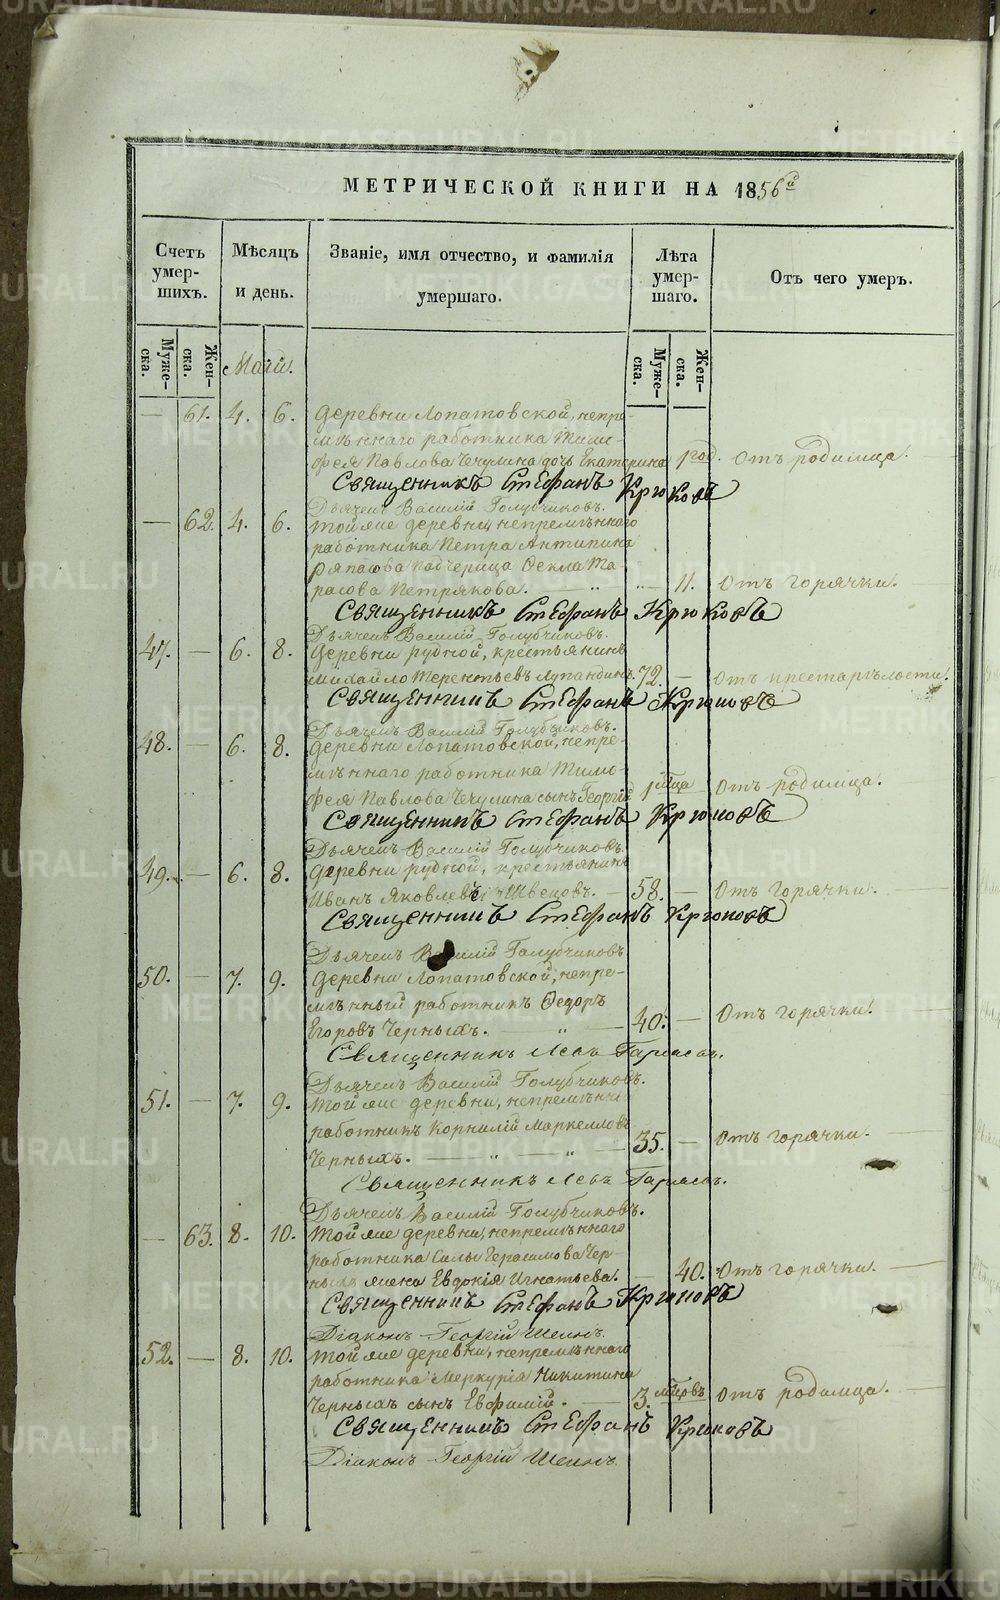 МЕТРИЧЕСКОЙ КНИГИ НА 1856й
Счетъ умер-шихъ. Мѣсяцъ и день. Званіе, имя отчество, и фамилія умершаго. Лѣта умер-шаго. Отъ чего умеръ.
Муже-ска. Жен-ска. Муже-ска. Жен-ска.
Маій.
— 61. 4. 6. Деревни Лопатовской, непре-
мѣннаго работника Тимо-
фея Павлова Чечулина дочь Екатерина 1 год. Отъ родимца.
Священникъ Стефанъ Крюковъ
Дьячекъ Василій Голубчиковъ.
— 62. 4. 6. Той же деревни, непремѣннаго
работника Петра Антипина
падчерица Фекла Та-
расова Петрякова. — „ „— 11. Отъ горячки.
Священникъ Стефанъ Крюковъ
Дьячекъ Василій Голубчиковъ.
47. — 6. 8. Деревни рудной, крестьянинъ
Михайло Терентьевъ Лупандинъ. 72. — Отъ престарѣлости.
Священникъ Стефанъ Крюковъ
Дьячекъ Василій Голубчиковъ.
48. — 6. 8. Деревни Лопатовской, непре-
мѣннаго работника Тимо-
фея Павлова Чечулина сынъ Георгій 1 мца Отъ родимца.
Священникъ Стефанъ Крюковъ
Дьячекъ Василій Голубчиковъ.
49. — 6. 8. Деревни рудной, крестьянинъ
Иванъ Яковлевъ Швецовъ. — 58. — Отъ горячки.
Священникъ Стефанъ Крюковъ
Дьячекъ Василій Голубчиковъ
50. — 7. 9. Деревни Лопатовской, непре-
мѣнный работникъ Федоръ
Егоровъ Черныхъ. — „ — 40. — Отъ горячки.
Священникъ Левъ
Дьячекъ Василій Голубчиковъ.
51. — 7. 9. Той же деревни, непремѣнный
работникъ Корнилій Маркелловъ
Черныхъ. — „ — „ — 35. — Отъ горячки.
Священникъ Левъ
Дьячекъ Василій Голубчиковъ.
— 63. 8. 10. Той же деревни, непремѣннаго
работника Силы Герасимова Чер-
ныхъ жена Евдокія Игнатьева. — 40. Отъ горячки.
Священникъ Стефанъ Крюковъ
Діаконъ Георгій
52. — 8. 10. Той же деревни, непремѣннаго
работника Меркурія Никитина
Черныхъ сынъ Евфимій. — 3. мѣсяцовъ Отъ родимца.
Священникъ Стефанъ Крюковъ
Діаконъ Георгій
METRIKI.GASO-URAL.RU